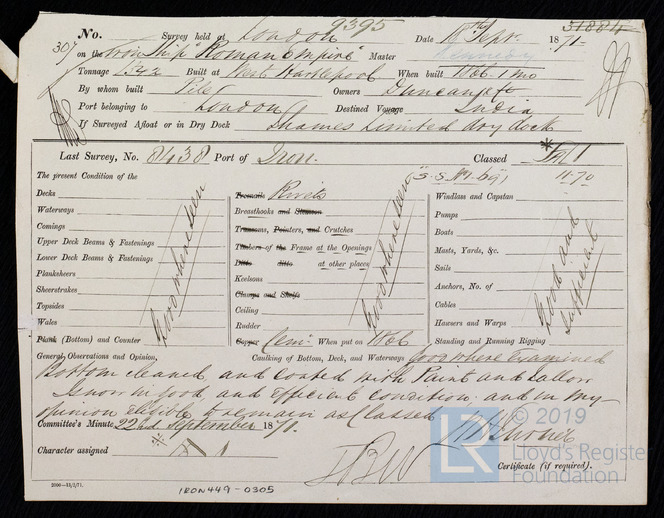 9395
31884
No. Survey held at London Date 18th Sept. 1871.
307 on the Iron Ship "Roman Empire" Master Kennedy
Tonnage 1342 Built at West Hartlepool When built 1866-1 mo
By whom built Pile Owners Duncan
Port belonging to London Destined Voyage India
If Surveyed Afloat or in Dry Dock Thames Limited dry dock
Last Survey, No. 8438 Port of Iron. Classed
The present Condition of the
11-70
Decks
Waterways
Comings
Upper Deck Beams & Fastenings
Lower Deck Beams & Fastenings
Planksheers
Sheerstrakes
Topsides
Wales
Plank (Bottom) and Counter
Good where seen
Treenails Rivets
Breasthooks and Stemson
Transoms, Pointers, and Crutches
Timbers of the Frame at the Openings
Ditto ditto at other places
Keelsons
Clamps and Shelfs
Ceiling
Rudder
Copper Cem. When put on 1866
Good where seen
Windlass and Capstan
Pumps
Boats
Masts, Yards, &c.
Sails
Anchors, No. of
Cables
Hawsers and Warps
Standing and Running Rigging
Good and Sufficient
General Observations and Opinion, Caulking of Bottom, Deck, and Waterways Good where examined
Bottom cleaned and coated with Paint and Tallow
Is now in good and efficient condition; and in my
opinion eligible to remain as Classed
Committee's Minute 22nd September 1871.
Character assigned
Certificate (if required).
2000—13/2/71.
IRON449-0305
© 2019
LR
Lloyd's Register
Foundation